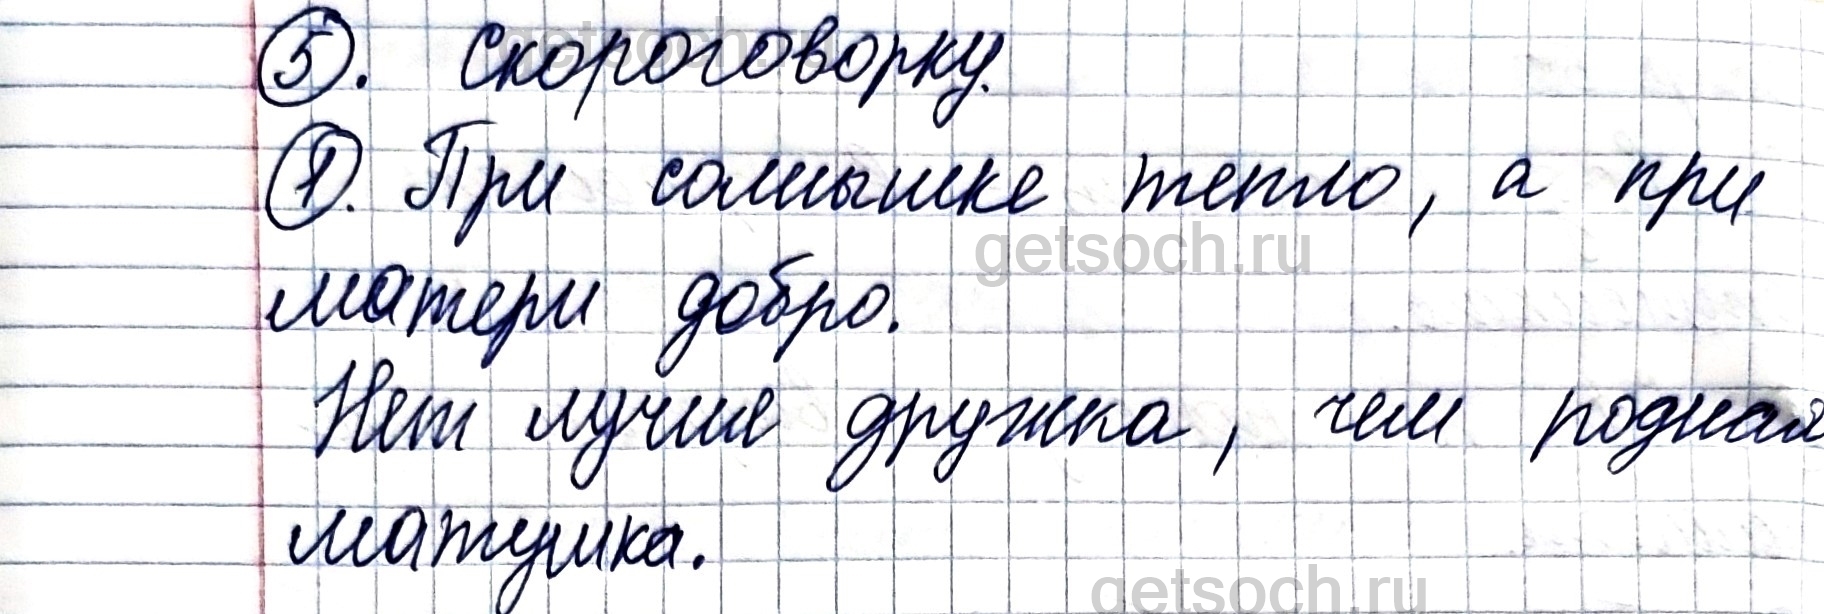 getsoch.ru
5. Скороговорку.
1. При солнышке тепло, а при
getsoch.ru
матери добро.
Нет лучше дружка, чем родная
матушка.
getsoch.ru